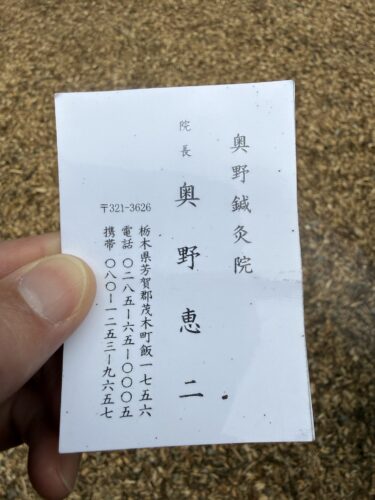 奥野鍼灸院
院長
奥野恵二
〒321-3626
栃木県芳賀郡茂木町飯一七五六
電話 〇二八五ー六五ー〇〇〇五
携帯 〇八〇ー一二五三ー九六五七